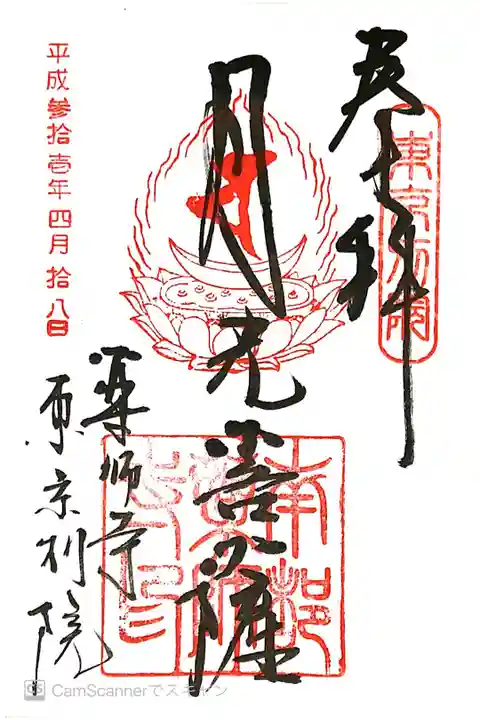 奉拝
東京別院
月光菩薩
南都薬師寺印
薬師寺
東京別院
平成参拾壱年四月拾八日
CS CamScannerでスキャン